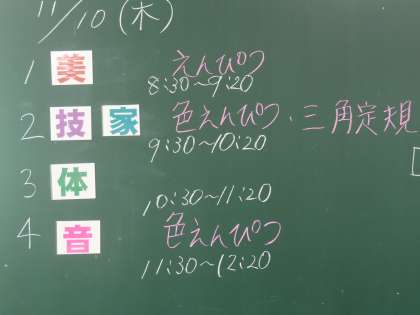 11/10(木)
1 美 えんぴつ
8:30～9:20
2 技 家 色えんぴつ・三角定規
9:30～10:20
3 体
10:30～11:20
4 音 色えんぴつ
11:30～12:20